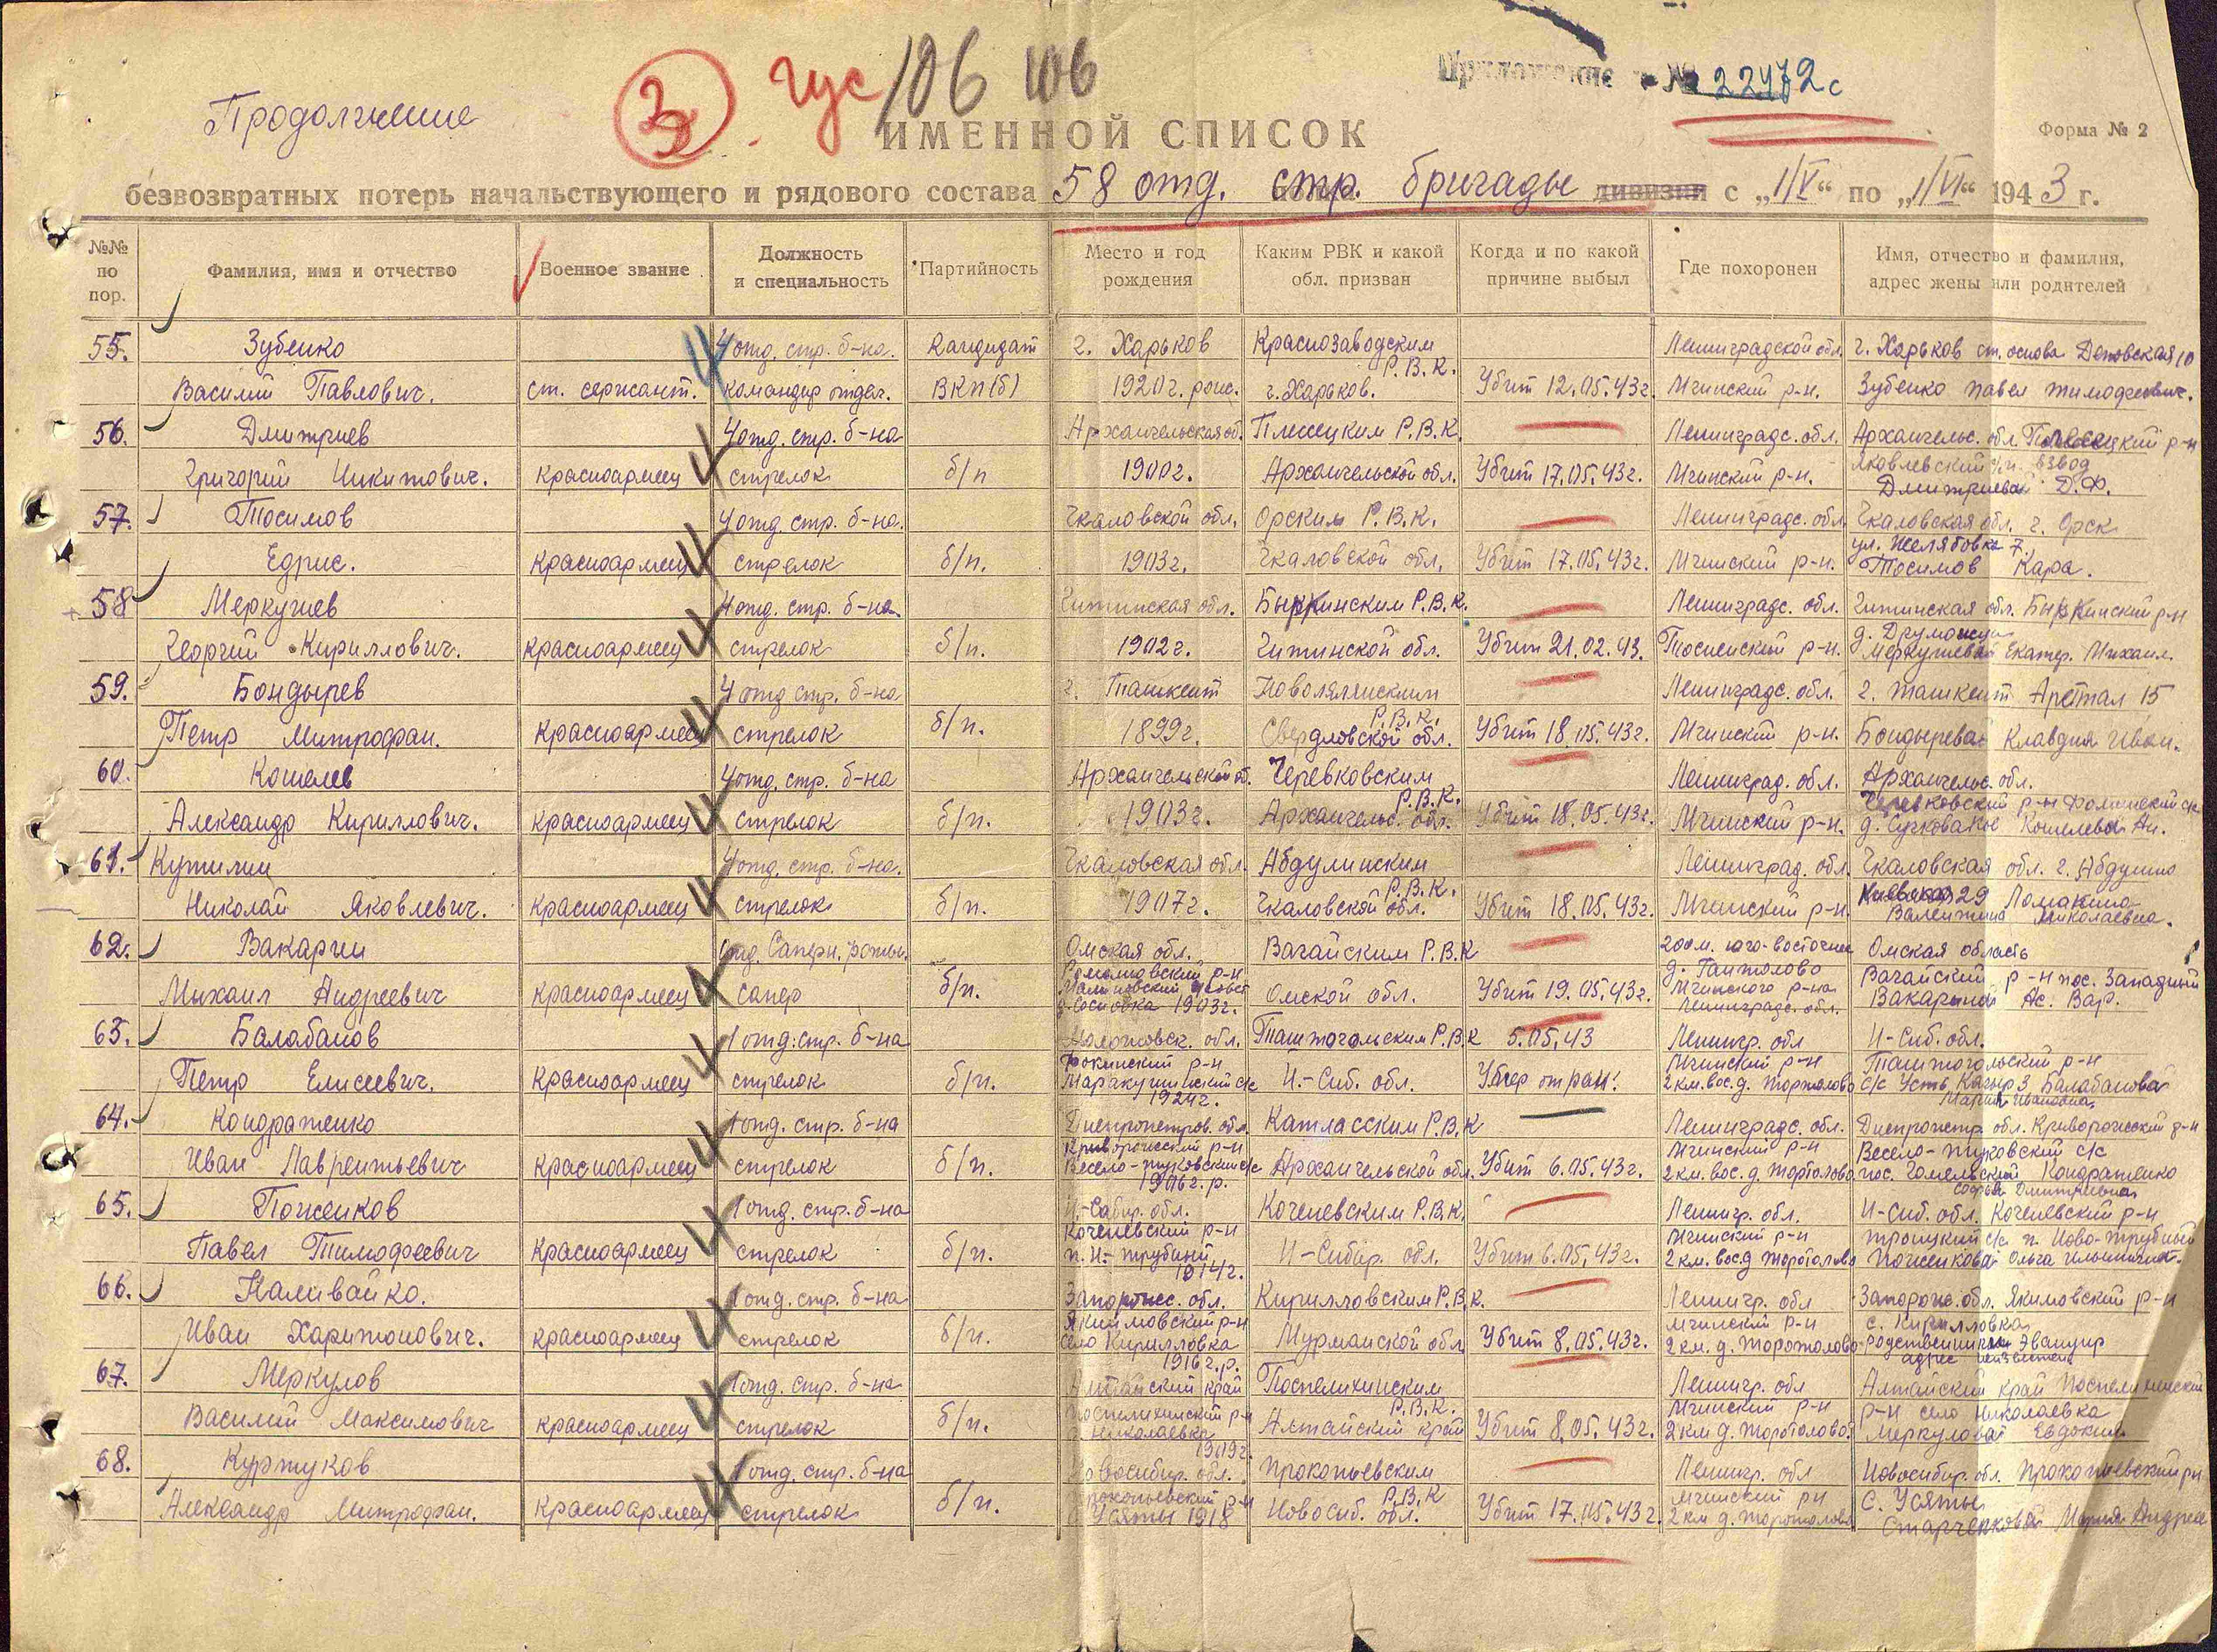 Продолжение
3
106 106
Приложение к № 22472с
Форма № 2
ИМЕННОЙ СПИСОК
безвозвратных потерь начальствующего и рядового состава 58 отд. стр. бригады дивизии с „1/V“ по „1/VI“ 1943 г.
№№ по пор.
Фамилия, имя и отчество
Военное звание
Должность и специальность
Партийность
Место и год рождения
Каким РВК и какой обл. призван
Когда и по какой причине выбыл
Где похоронен
Имя, отчество и фамилия, адрес жены или родителей
55. Зубенко 4 отд. стр. б-на. Кандидат г. Харьков Краснозаводским Р.В.К. Ленинградской обл. г. Харьков ст. основа Деповская 10
Василий Павлович. ст. сержант. командир отдел. ВКП(б) 1920 г. рож. г. Харьков. Убит 12.05.43г. Мгинский р-н. Зубенко Павел Тимофеевич.
56. Дмитриев 4 отд. стр. б-на Архангельская об. Плесецким Р.В.К. Ленинградс. обл. Архангельс. обл. Плесецкий р-н
Яковлевский взвод
Григорий Никитович. красноармеец стрелок б/п 1900г. Архангельской обл. Убит 17.05.43г. Мгинский р-н. Дмитриевой Д.Ф.
57. Тосимов 4 отд. стр. б-на. Чкаловской обл. Орским Р.В.К. Ленинградс. обл. Чкаловская обл. г. Орск
ул. Желябовка 7.
Едрис. красноармеец стрелок б/п. 1903г. Чкаловской обл. Убит 17.05.43г. Мгинский р-н. Тосимов Кара.
58 Меркушев 4 отд. стр. б-на. Читинская обл. Быркинским Р.В.К. Ленинградс. обл. Читинская обл. Быркинский р-н
Георгий Кириллович. красноармеец стрелок б/п. 1902г. Читинской обл. Убит 21.02.43. Тосненский р-н. Меркушевой Екатер. Михаил.
59. Бондырев 4 отд стр. б-на г. Ташкент Ленинградс. обл. г. Ташкент. 15
Р.В.К.
Петр Митрофан. красноармеец стрелок б/п. 1899г. Свердловской обл. Убит 18.05.43г. Мгинский р-н. Бондырева Клавдия Иван.
60. Кошелев 4 отд. стр. б-на Архангельской об. Черевковским Р.В.К. Ленинград. обл. Архангельс. обл.
Черевковский р-н
Александр Кириллович. красноармеец стрелок б/п. 1903г. Архангельс. обл. Убит 18.05.43г. Мгинский р-н. Кошелева Ан.
61. Кутилин 4 отд. стр. б-на. Чкаловская обл. Абдулинским Р.В.К. Ленинград. обл. Чкаловская обл. г. Абдулино
29 Ломакина
Николай Яковлевич. красноармеец стрелок б/п. 1907г. Чкаловской обл. Убит 18.05.43г. Мгинский р-н. Валентина Николаевна.
62. Вакарин отд. Саперн. роты. Омская обл. Вагайским Р.В.К 200 м. юго-восточнее Омская область
д. Гантолово Вагайский р-н пос. Западный
Михаил Андреевич красноармеец сапер б/п. д. Сосновка 1903г. Омской обл. Убит 19.05.43г. Мгинского р-на Вакариной Ас. Вар.
Ленинградс. обл.
63. Балабанов 1 отд. стр. б-на Молотовск. обл. Таштогольским Р.В.К 5.05.43 Ленингр. обл Н-Сиб. обл.
Фокинский р-н Мгинский р-н Таштогольский р-н
Петр Елисеевич. красноармеец стрелок б/п. Маракушинский с/с Н.-Сиб. обл. Умер от ран. 2 км. вос. д. Тортолово с/с Усть Кабырз, Балабановой
1924г. Мария Ивановна.
64. Кондратенко 1 отд. стр. б-на Днепропетров. обл. Катласским Р.В.К Ленинградс. обл. Днепропетр. обл. Криворожский р-н
Криворожский р-н Мгинский р-н Весело-тирковский с/с
Иван Лаврентьевич красноармеец стрелок б/п. Архангельской обл. Убит 6.05.43г. 2 км. вос. д. Тортолово пос. Гомельский Кондратенко
1906г.р. Софья Дмитриевна
65. Поженков 1 отд. стр. б-на Н-Сибир. обл. Коченевским Р.В.К. Ленингр. обл. Н-Сиб. обл. Коченевский р-н
Коченевский р-н Мгинский р-н Троицкий с/с п. Ново-Трубный
Павел Тимофеевич красноармеец стрелок б/п. п. Н-Трубный Н-Сибир. обл. Убит 6.05.43г. 2 км. вос. д Торотолово Поженковой Ольга Ильинична.
1914г.
66. Наливайко. 1 отд. стр. б-на Запорожс. обл. Кирилловским Р.В.К. Ленингр. обл Запорож. обл. Якимовский р-н
Якимовский р-н Мгинский р-н с. Кирилловка
Иван Харитонович. красноармеец стрелок б/п. село Кирилловка Мурманской обл Убит 8.05.43г. 2 км. д. Торотолово родственники Эвакуир
1916г.р. адрес неизвестен
67. Меркулов 1 отд. стр. б-на Алтайский край Поспелихинским Р.В.К. Ленингр. обл Алтайский край Поспелихинский
Поспелихинский р-н Мгинский р-н р-н село Николаевка
Василий Максимович красноармеец стрелок б/п. Николаевка Алтайский край Убит 8.05.43г. 2 км д. Торотолово. Меркуловой Евдокия
1909г.
68. Куртуков 1 отд. стр. б-на Новосибир. обл. Прокопьевским Р.В.К Ленингр. обл Новосибир. обл. Прокопьевский р-н
Прокопьевский р-н Мгинский рн С. Усяты
Александр Митрофан. красноармеец стрелок б/п. Усяты 1918 Новосиб. обл. Убит 17.05.43г. 2 км д. Торотолово Старченковой Мария Андрее